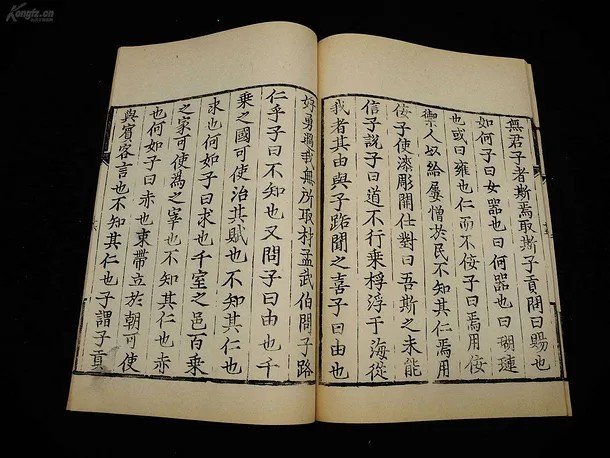 無君子者斯焉取斯子貢問曰賜也
如何子曰女器也曰何器也曰瑚璉
也或曰雍也仁而不佞子曰焉用佞
禦人以給屢憎於民不知其仁焉用
佞子使漆彫開仕對曰吾斯之未能
信子說子曰道不行乗桴浮于海從
我者其由與子路聞之喜子曰由也
好勇過我無所取材孟武伯問子路
仁乎子曰不知也又問子曰由也千
乗之國可使治其賦也不知其仁也
求也何如子曰求也千室之邑百乗
之家可使為之宰也不知其仁也赤
也何如子曰赤也束帶立於朝可使
與賓客言也不知其仁也子謂子貢
Kongfz.cn